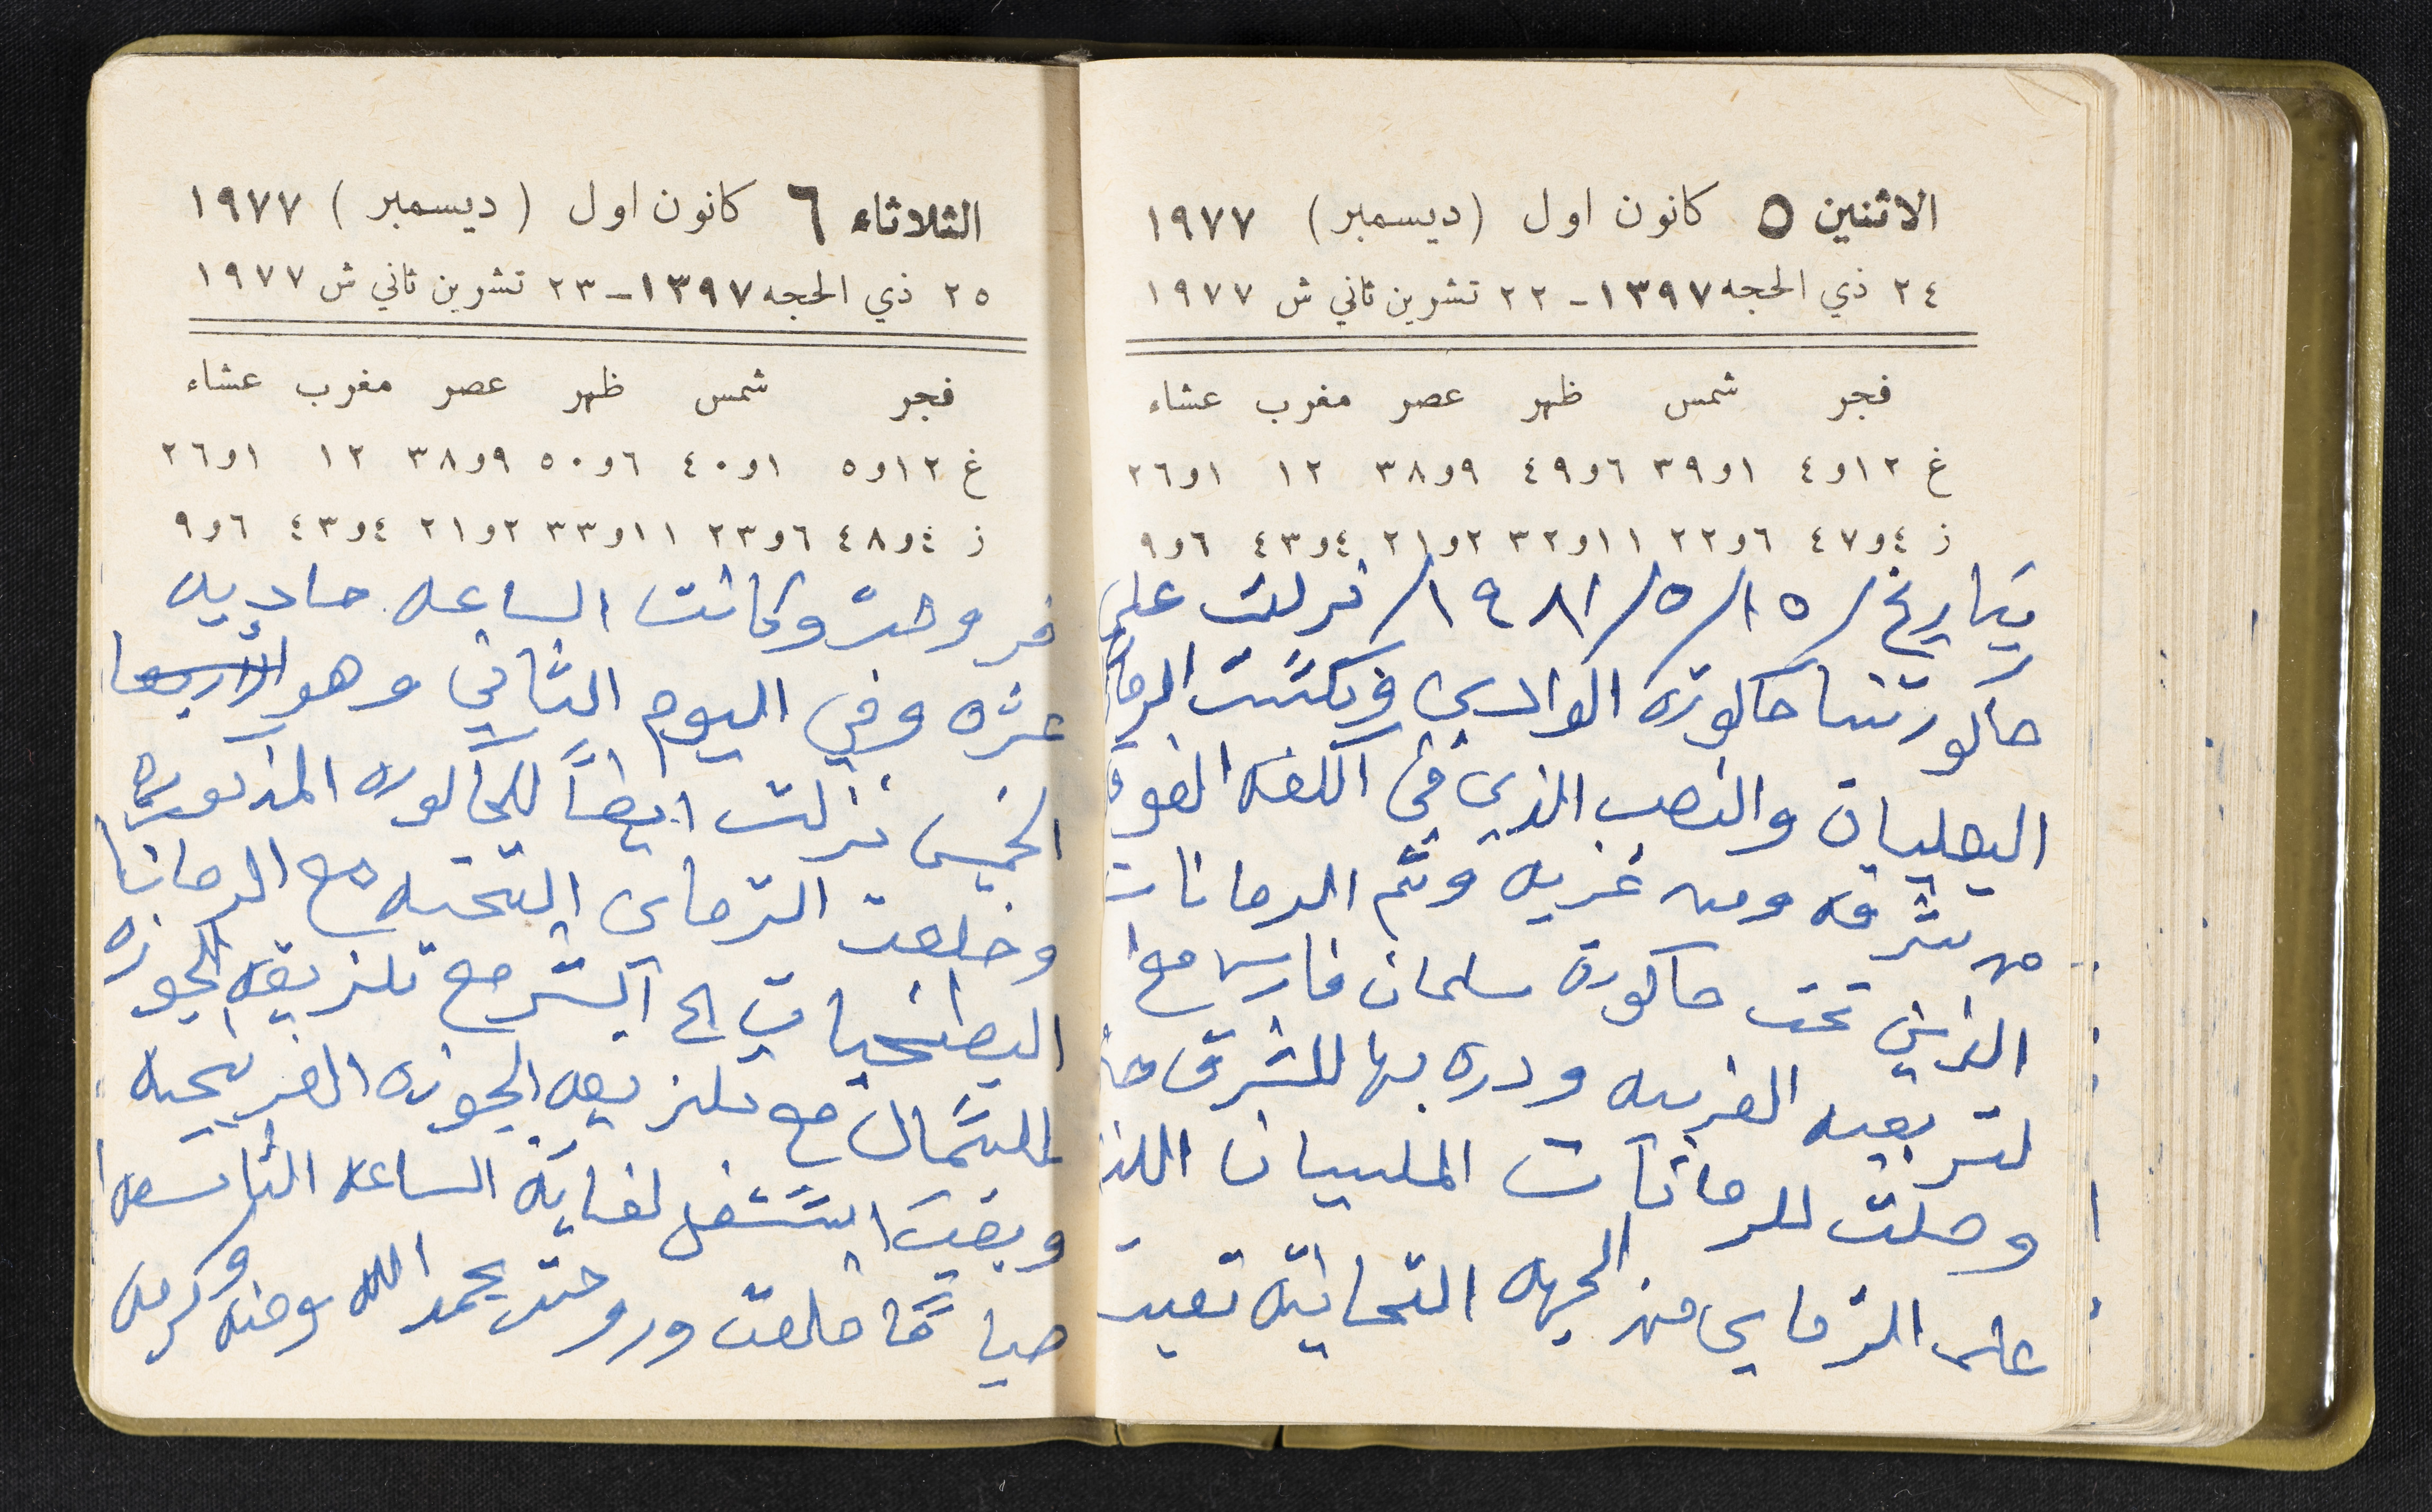 الاثنين ٥ كانون اول (ديسمبر) ١٩٧٧
٢٤ ذي الحجه ١٣٩٧ - ٢٢ تشرين ثاني ش ١٩٧٧
فجر شمس ظهر عصر مغرب عشاء
غ ١٢و٤ ١و٣٩ ٦و٤٩ ٩و٣٨ ١٢ ١و٢٦
ز ٤و٤٧ ٦و٢٢ ١١و٣٢ ٢و٢١ ٤و٤٣ ٦و٩
بتاريخ /١٥/٥/١٩٨١/ نزلت على
حاكورتنا حاكورة الوادي
والنصب الذي في
من شرقه ومن غربه وثم الرمانات
الذين تحت حاكورة سلمان فارس مع
لتربعيه الغربيه ودره بها للشرق
وصلت للرمانات المليسيان
على الترماي من الجهه التحانيه تعبت
الثلاثاء ٦ كانون اول (ديسمبر) ١٩٧٧
٢٥ ذي الحجه ١٣٩٧ - ٢٣ تشرين ثاني ش ١٩٧٧
فجر شمس ظهر عصر مغرب عشاء
غ ١٢و٥ ١و٤٠ ٦و٥٠ ٩و٣٨ ١٢ ١و٢٦
ز ٤و٤٨ ٦و٢٣ ١١و٣٣ ٢و٢١ ٤و٤٣ ٦و٩
فروحت وكانت الساعه حاديه
عشره وفي اليوم الثاني وهو الاربعا
الخميس نزلت ايضاً للحاكوره المذكوره
وخلصت الترماي التحته مع الرمانا
مع تلزيقة الجوزه
للشمال مع تلزيقه الجوزه الفرنجيه
وبقيت اشتغل لغاية الساعه التاسعه
صباحاً خلصت وروحت بحمد الله ومنه وكرمه